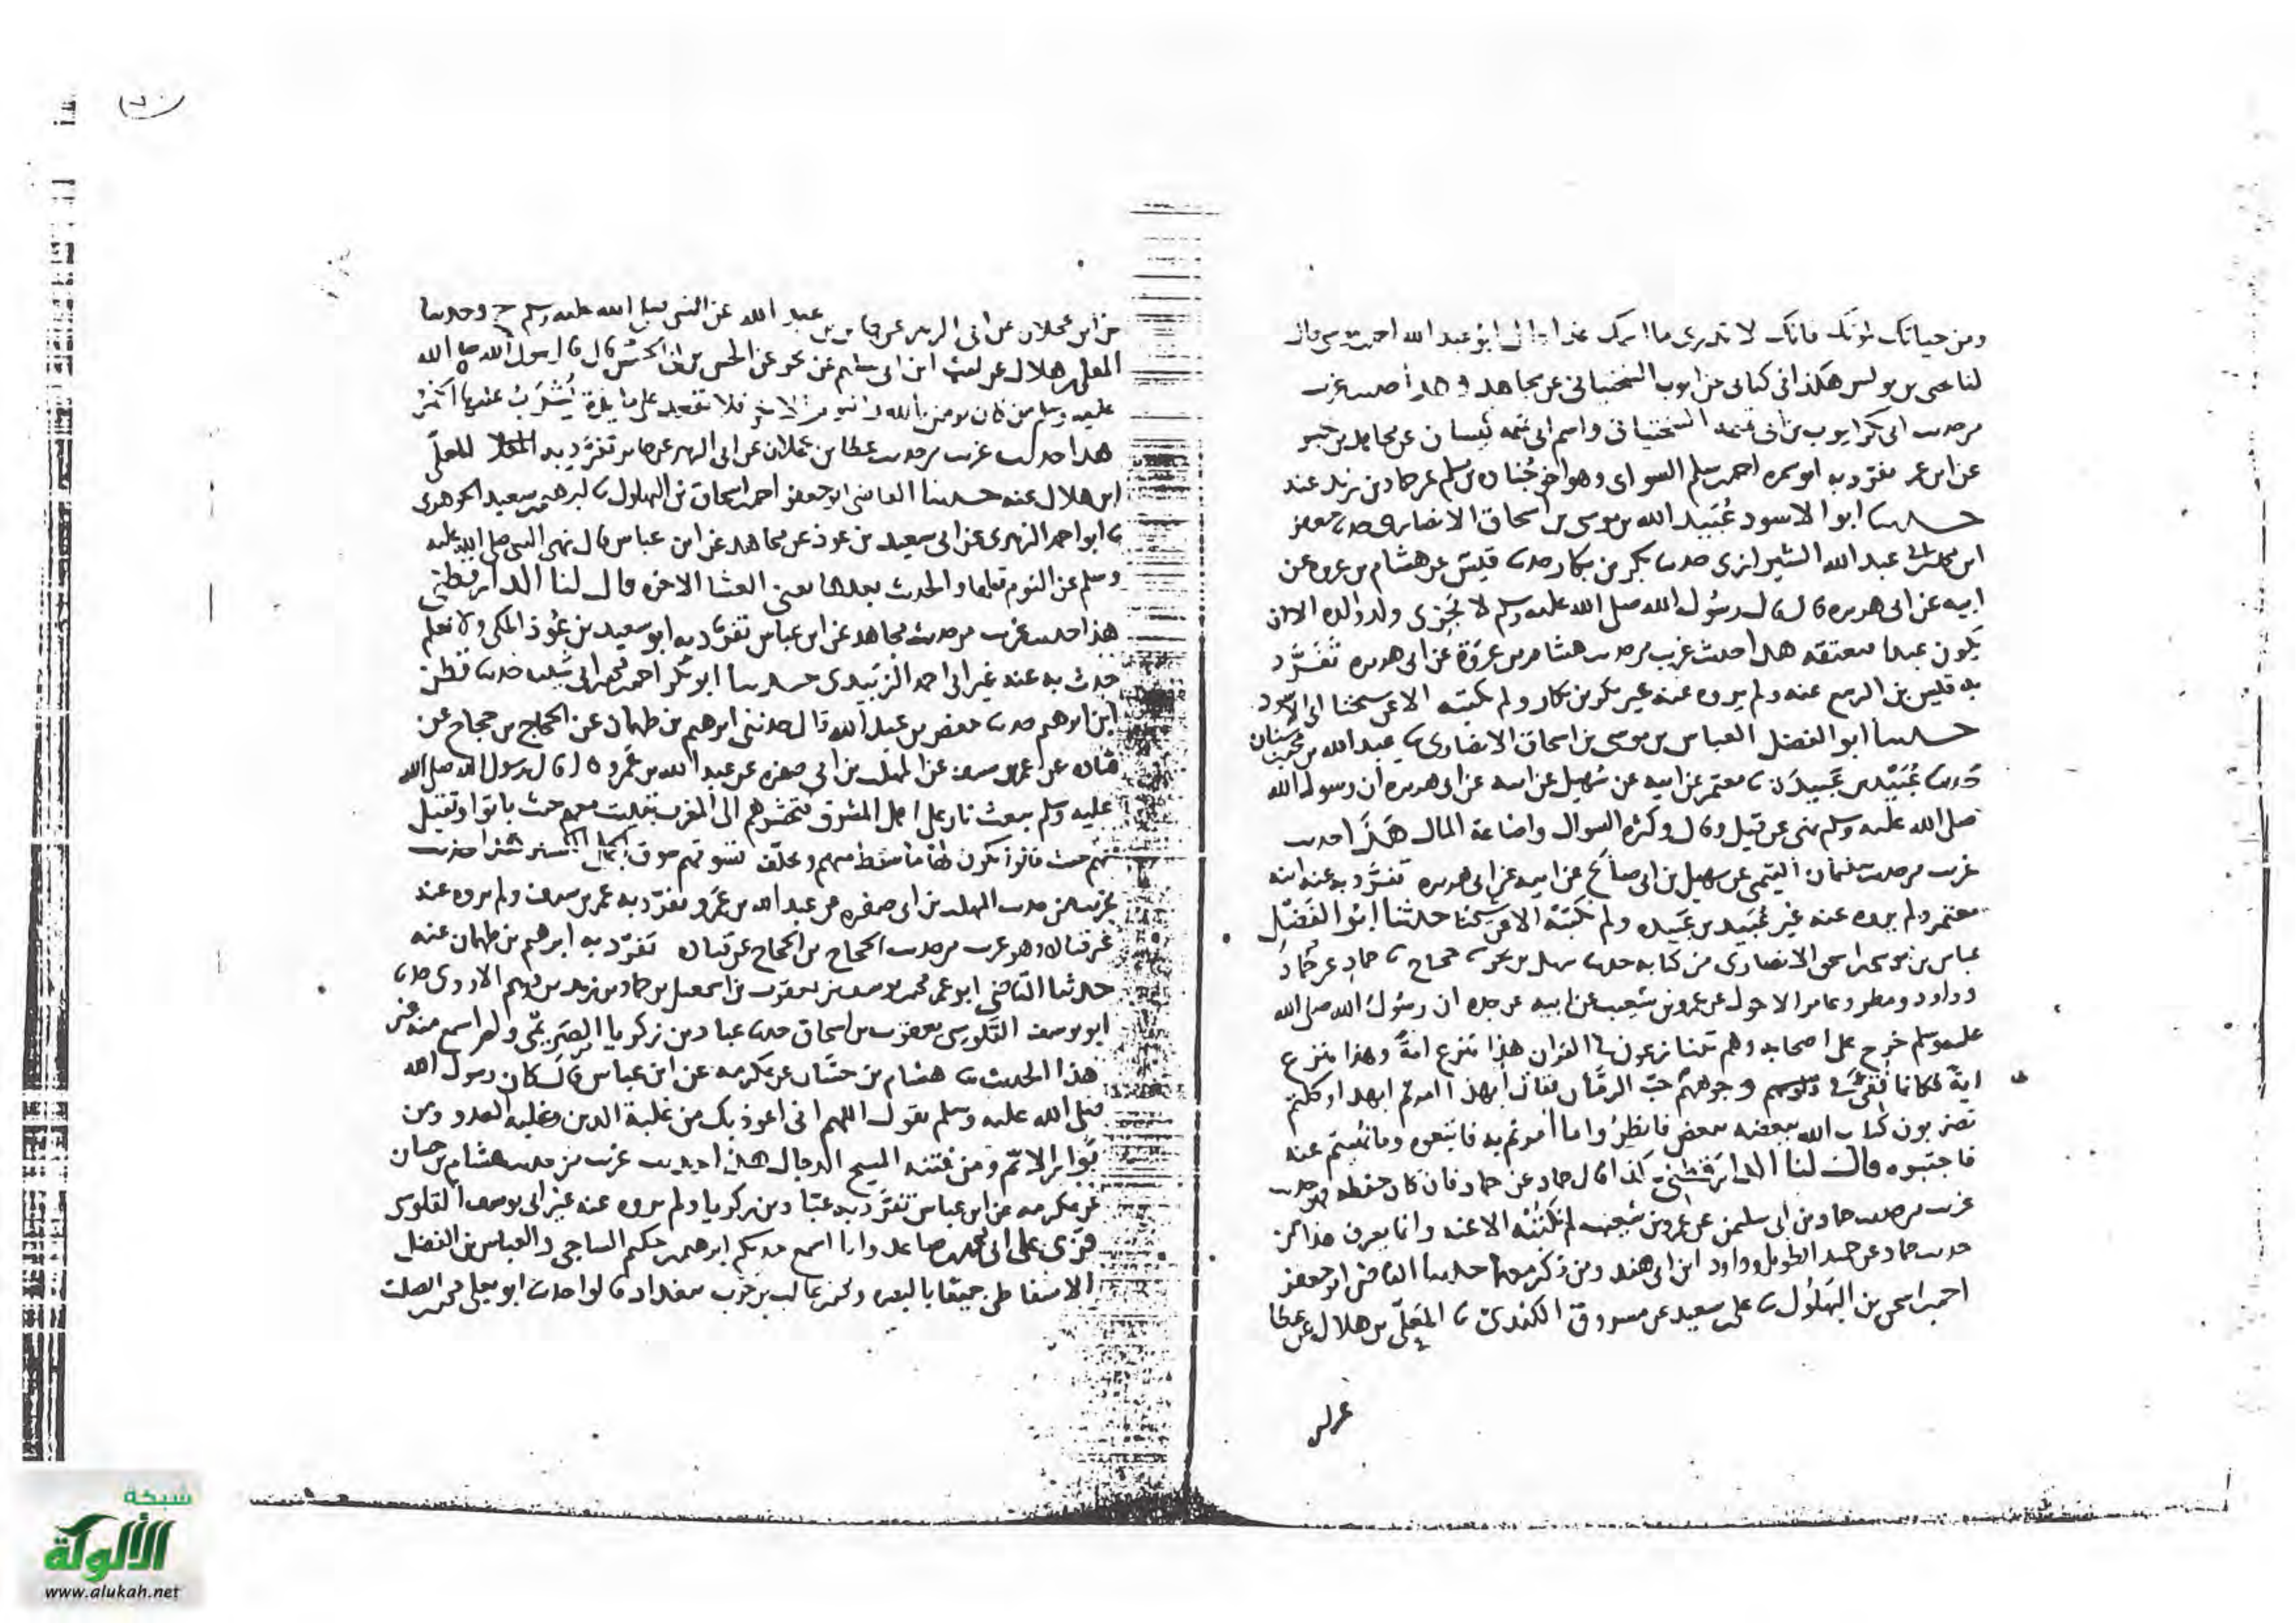 ومن حياتك لموتك فانك لا تدرى ما اسمك غدا قال ابو عبد الله احمد
لنا بن يونس هكذا فى كتابى عن ايوب السختيانى عن مجاهد وهذا حديث غريب
من حديث ابى بكر ايوب بن ابى تميمه السختيانى واسم ابى تميمه كيسان عن مجاهد بن جبر
عن ابن عمر تفرد به ابو سمره احمد بن سلم السواى وهو اخو جناده بن سلم عن حماد بن زيد عنه
حدثنا ابو الاسود عبيد الله بن موسى بن اسحاق الانصارى حدثنا جعفر
ابن محمد عبد الله الشيرازى حدثنا بكر بن بكار حدثنا قيس عن هشام بن عروه عن
ابيه عن ابى هريره قال قال رسول الله صلى الله عليه وسلم لا يجزى ولد والده الا ان
يكون عبدا فيعتقه هذا حديث غريب من حديث هشام بن عروة عن ابى هريره تفرد
به قيس بن الربيع عنه ولم يروه عنه غير بكر بن بكار ولم نكتبه الا عن شيخنا ابى الاسود
حدثنا ابو الفضل العباس بن موسى بن اسحاق الانصارى نا عبد الله بن محمد بن سنان
حدثنا عبيد بن عبيدة نا معتمر عن ابيه عن سهيل عن ابيه عن ابى هريره ان رسول الله
صلى الله عليه وسلم نهى عن قيل وقال وكثرة السوال واضاعة المال هذا حديث
غريب من حديث سليمان التيمى عن سهيل بن ابى صالح عن ابيه عن ابى هريره تفرد به عنه ابنه
معتمر ولم يروه عنه غير عبيد بن عبيده ولم نكتبه الا عن شيخنا حدثنا ابو الفضل
عباس بن موسى بن اسحق الانصارى من كتابه حدثنا سهل بن بحر نا حجاج نا حماد عن حماد
وداود ومطر وعامر الاحول عن عمرو بن شعيب عن ابيه عن جده ان رسول الله صلى الله
عليه وسلم خرج على اصحابه وهم يتنازعون فى القران هذا ينزع اية وهذا ينزع
اية فكانما فى وجوههم حب الرمان فقال ابهذا امرتم ابهذا وكلتم
تضربون كتاب الله بعضه ببعض فانظروا ما امرتم به فاتبعوه وما نهيتم عنه
فاجتنبوه قال لنا الدارقطنى كذا قال حماد عن حماد فان كان حفظه فهو حديث
غريب من حديث حماد بن ابى سليمن عن عمرو بن شعيب لم نكتبه الا عنه وانما يعرف هذا من
حديث حماد عن حميد الطويل وداود ابن ابى هند ومن ذكر معهما حدثنا القاضى ابو جعفر
احمد بن اسحق بن البهلول نا على بن سعيد بن مسروق الكندى نا المعلى بن هلال عن عطا
عن ابن عجلان عن ابى الزبير عن جابر بن عبد الله عن النبى صلى الله عليه وسلم ح وحدثنا
المعلى بن هلال عن ليث ابن ابى سليم عن الحسن بن ابى الحسن قال قال رسول الله صلى الله
عليه وسلم من كان يومن بالله واليوم الاخر فلا تقعد على مايدة يشرب عليها الخمر
هذا حديث غريب من حديث عطا بن عجلان عن ابى الزبير عن جابر تفرد به المعلى
ابن هلال عنه حدثنا القاضى ابو جعفر احمد بن اسحاق بن البهلول نا ابرهيم بن سعيد الجوهرى
نا ابو احمد الزبيرى عن ابى سعيد بن عوذ عن مجاهد عن ابن عباس قال نهى النبى صلى الله عليه
وسلم عن النوم قبلها والحديث بعدها يعنى العشا الاخره قال لنا الدارقطنى
هذا حديث غريب من حديث مجاهد عن ابن عباس تفرد به ابو سعيد بن عوذ المكى ولا نعلم
حدث به عنه غير ابى احمد الزبيرى حدثنا ابو بكر احمد بن محمد بن ابى شيبه حدثنا قطن
ابن ابرهيم حدثنا حفص بن عبد الله قال حدثنى ابرهيم بن طهمان عن الحجاج بن حجاج عن
قتاده عن عمر بن سيف عن المهلب بن ابى صفره عن عبد الله بن عمرو قال قال رسول الله صلى الله
عليه وسلم يبعث نار على اهل المشرق فتحشرهم الى المغرب تبيت معهم حيث باتوا وتقيل
معهم حيث قالوا يكون لها ما سقط منهم وتخلف تسوقهم سوق الجمل الكسير هذا حديث
غريب من حديث المهلب بن ابى صفره عن عبد الله بن عمرو تفرد به عمر بن سيف ولم يروه عنه
غير قتاده وهو غريب من حديث الحجاج بن الحجاج عن قتاده تفرد به ابرهيم بن طهمان عنه
حدثنا القاضى ابو عمر محمد بن يوسف بن يعقوب بن اسمعيل بن حماد بن زيد بن درهم الازدى حدثنا
ابو يوسف القلوسى يعقوب بن اسحاق حدثنا عباد بن زكريا الصريمى ولم اسمع منه غير
هذا الحديث نا هشام بن حسان عن عكرمه عن ابن عباس قال كان رسول الله
صلى الله عليه وسلم يقول اللهم انى اعوذ بك من غلبة الدين وغلبة العدو ومن
بوار الايم ومن فتنه المسيح الدجال هذا حديث غريب من حديث هشام بن حسان
عن عكرمه عن ابن عباس تفرد به عباد بن زكريا ولم يروه عنه غير ابى يوسف القلوسى
قرى على ابى محمد بن صاعد وانا اسمع حدثكم ابرهيم بن حكيم الساجى والعباس بن الفضل
الاسفاطى جميعا بالبصره ومحمد بن غالب بن حرب ببغداد قالوا حدثنا ابو يعلى محمد بن الصلت
شبكة
الألوكة
www.alukah.net